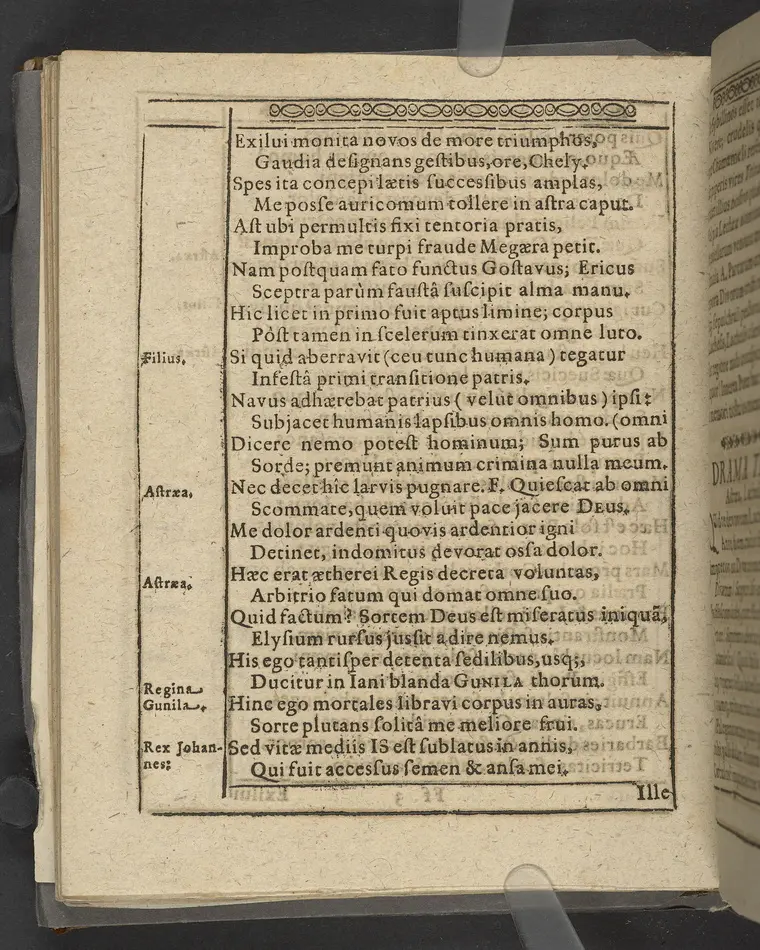 Exilui monita novos de more triumphos,
Gaudia deſignans geſtibus, ore, Chely.
Spes ita concepi lætis ſucceſſibus amplas,
Me poſſe auricomum tollere in aſtra caput.
Aſt ubi permultis fixi tentoria pratis,
Improba me turpi fraude Megæra petit.
Nam poſtquam fato functus Goſtavus; Ericus
Sceptra parùm fauſtâ ſuſcipit alma manu.
Hic licet in primo fuit aptus limine; corpus
Pòſt tamen in ſcelerum tinxerat omne luto.
Filius. Si quid aberravit (ceu tunc humana) tegatur
Infeſtâ primi tranſitione patris.
Navus adhærebat patrius (velut omnibus) ipſi:
Subjacet humanis lapſibus omnis homo. (omni
Dicere nemo poteſt hominum; Sum purus ab
Sorde; premunt animum crimina nulla meum.
Aſtræa. Nec decet hîc larvis pugnare. F. Quieſcat ab omni
Scommate, quem voluit pace jacere DEUS.
Me dolor ardenti quovis ardentior igni
Detinet, indomitus devorat oſſa dolor.
Aſtræa. Hæc erat ætherei Regis decreta voluntas,
Arbitrio fatum qui domat omne ſuo.
Quid factum? Sortem Deus eſt miſeratus iniquã,
Elyſium rurſus juſſit adire nemus.
His ego tantiſper detenta ſedilibus, uſq;,
Ducitur in Iani blanda GUNILA thorum.
Regina Gunila. Hinc ego mortales libravi corpus in auras,
Sorte putans ſolitâ me meliore frui.
Rex Johannes: Sed vitæ mediis IS eſt ſublatus in annis,
Qui fuit acceſſus ſemen & anſa mei.
Ille